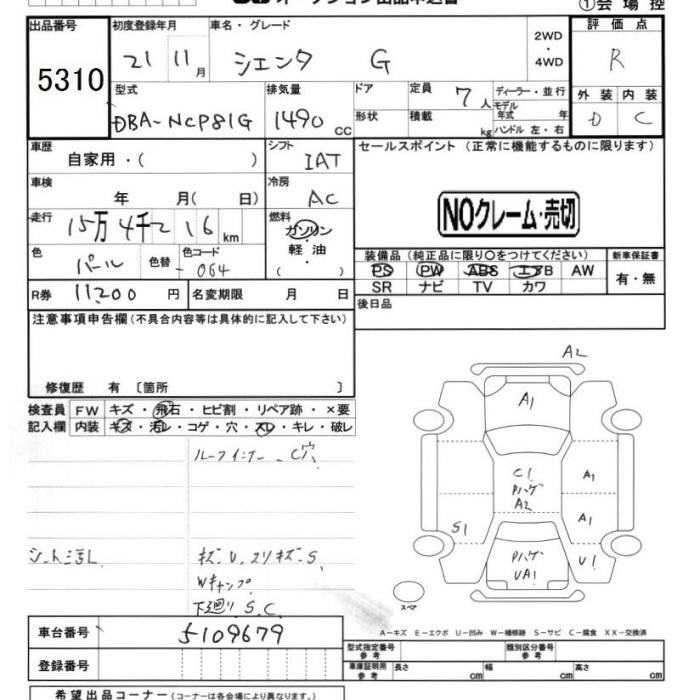 オークション出品申込書
①会場控
出品番号 初度登録年月 車名・グレード 2WD・4WD 評価点
5310 21 11月 シエンタ G R
型式 排気量 ドア 定員 7人 ディーラー・並行 外装 内装
DBA-NCP81G 1490cc 形状 積載 kg モデル年式 年 ハンドル 左・右 D C
車歴 自家用・( ) シフト IAT セールスポイント(正常に機能するものに限ります)
車検 年 月( 日) 冷房 AC NOクレーム・売切
走行 15万4千2 16km 燃料 ガソリン・軽油・( )
色 パール 色替 色コード 064 装備品(純正品に限り○をつけてください) 新車保証書
PS PW ABS エアB AW 有・無
SR ナビ TV カワ
R券 11200円 名変期限 月 日 後日品
注意事項申告欄(不具合内容等は具体的に記入して下さい)
修復歴 有〔箇所 〕
検査員 FW キズ・飛石・ヒビ割・リペア跡・×要
記入欄 内装 キズ・汚レ・コゲ・穴・スレ・キレ・破レ
A2
A1
ルーフインナー-C穴
C1
Pハゲ
A2
A1
A1
S1
U1
Pハゲ
UA1
シート汚L キズ.U.スリキズ.S
下廻り S.C
スペア
A-キズ E-エクボ U-凹み W-補修跡 S-サビ C-腐食 XX-交換済
車台番号 5109679
型式指定番号 参考 類別区分番号 参考
登録番号 車庫証明用 参考 長さ cm 幅 cm 高さ cm
希望出品コーナー(コーナーは各会場により異なります。)